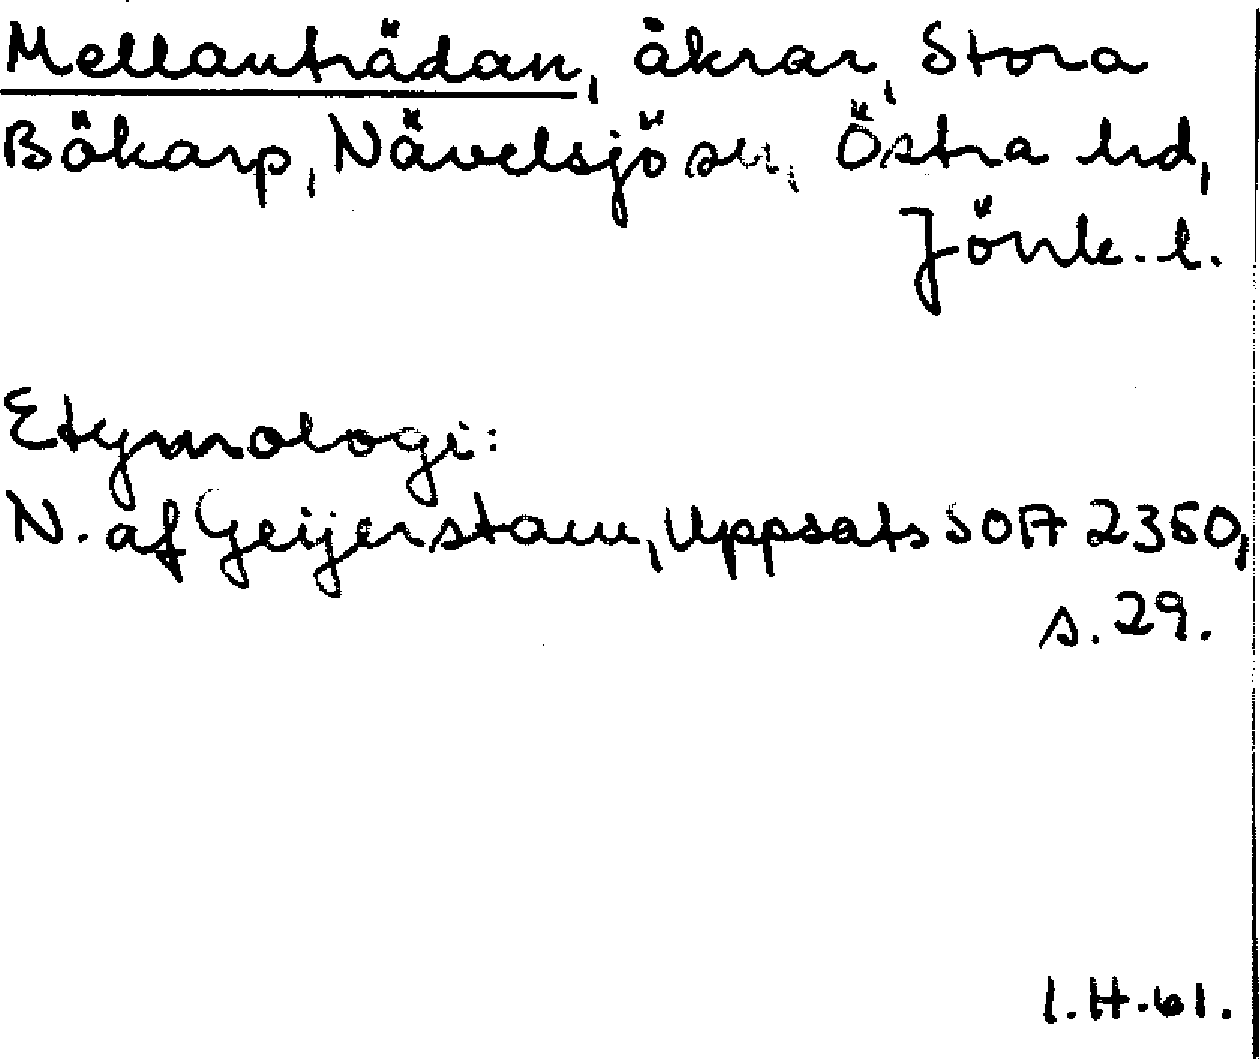 Mellanträdan, åkrar, Stora
Bökarp, Nävelsjö sn, Östra hd,
Jönk. l.
Etymologi:
N. af Geijerstam, Uppsats SOA 2350,
s. 29.
I.H.61.